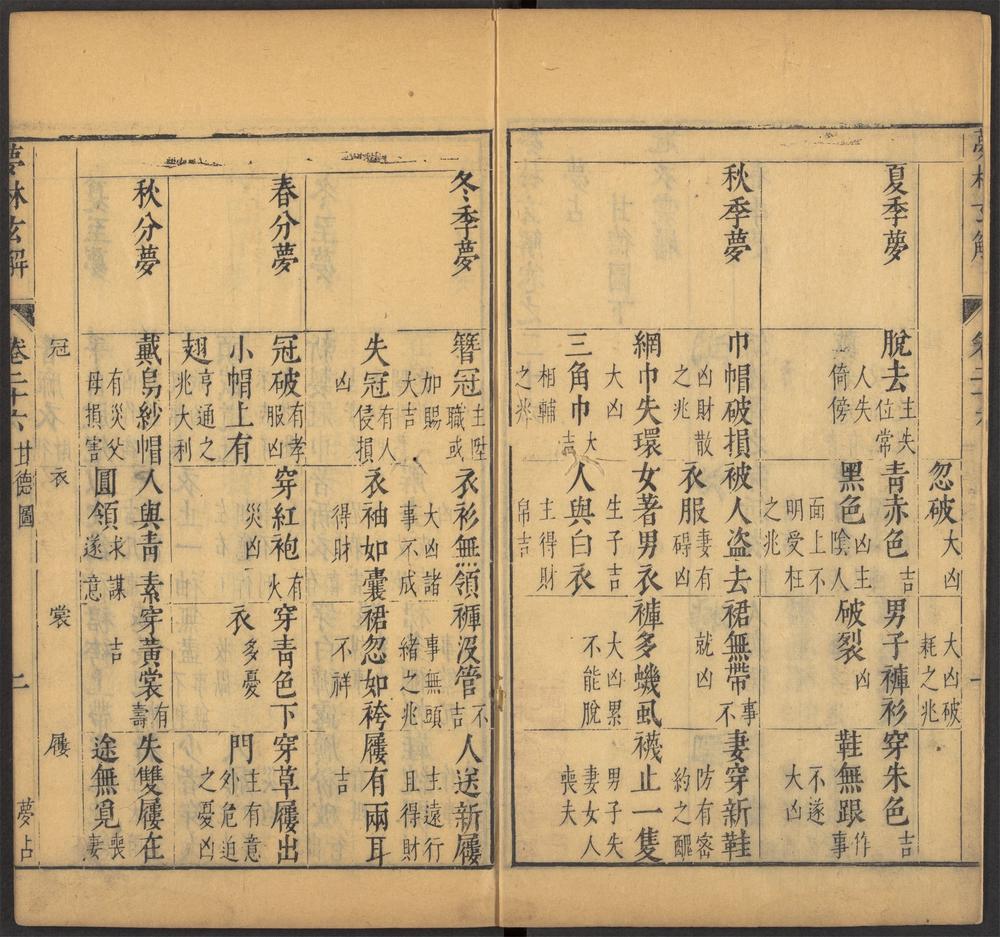 夢林玄解
卷二十六
一
忽破大凶
大凶破耗之兆
夏季夢
脫去主失位常人失倚傍
青赤色吉
黑色凶主陰人面上不明受枉之兆
男子褲衫破裂凶
穿朱色吉
鞋無跟作事不遂大凶
秋季夢
巾帽破損凶財散之兆
網巾失環大凶
三角巾大吉相輔之兆
被人盜去衣服妻有碍凶
女著男衣生子吉
人與白衣主得財帛吉
裙無帶事不就凶
褲多蟣虱大凶累不能脫
妻穿新鞋防有密約之醜
襪止一隻男子失妻女人喪夫
冬季夢
簪冠主陞職或加賜大吉
失冠有人侵損凶
衣衫無領大凶諸事不成
衣袖如囊得財
褲沒管不吉事無頭緒之兆
裙忽如袴不祥
人送新屨主遠行且得財
屨有兩耳吉
春分夢
冠破有孝服凶
小帽上有翅亨通之兆大利
穿紅袍有火災凶
穿青色下衣多憂
穿草屨出門主有意外危迫之憂凶
秋分夢
戴烏紗帽有災父母損害
人與青素圓領求謀遂意
穿黃裳有壽吉
失雙屨在途無覓喪妻
冠
衣
裳
屨
夢林玄解
卷二十六
甘德圖
二
夢占